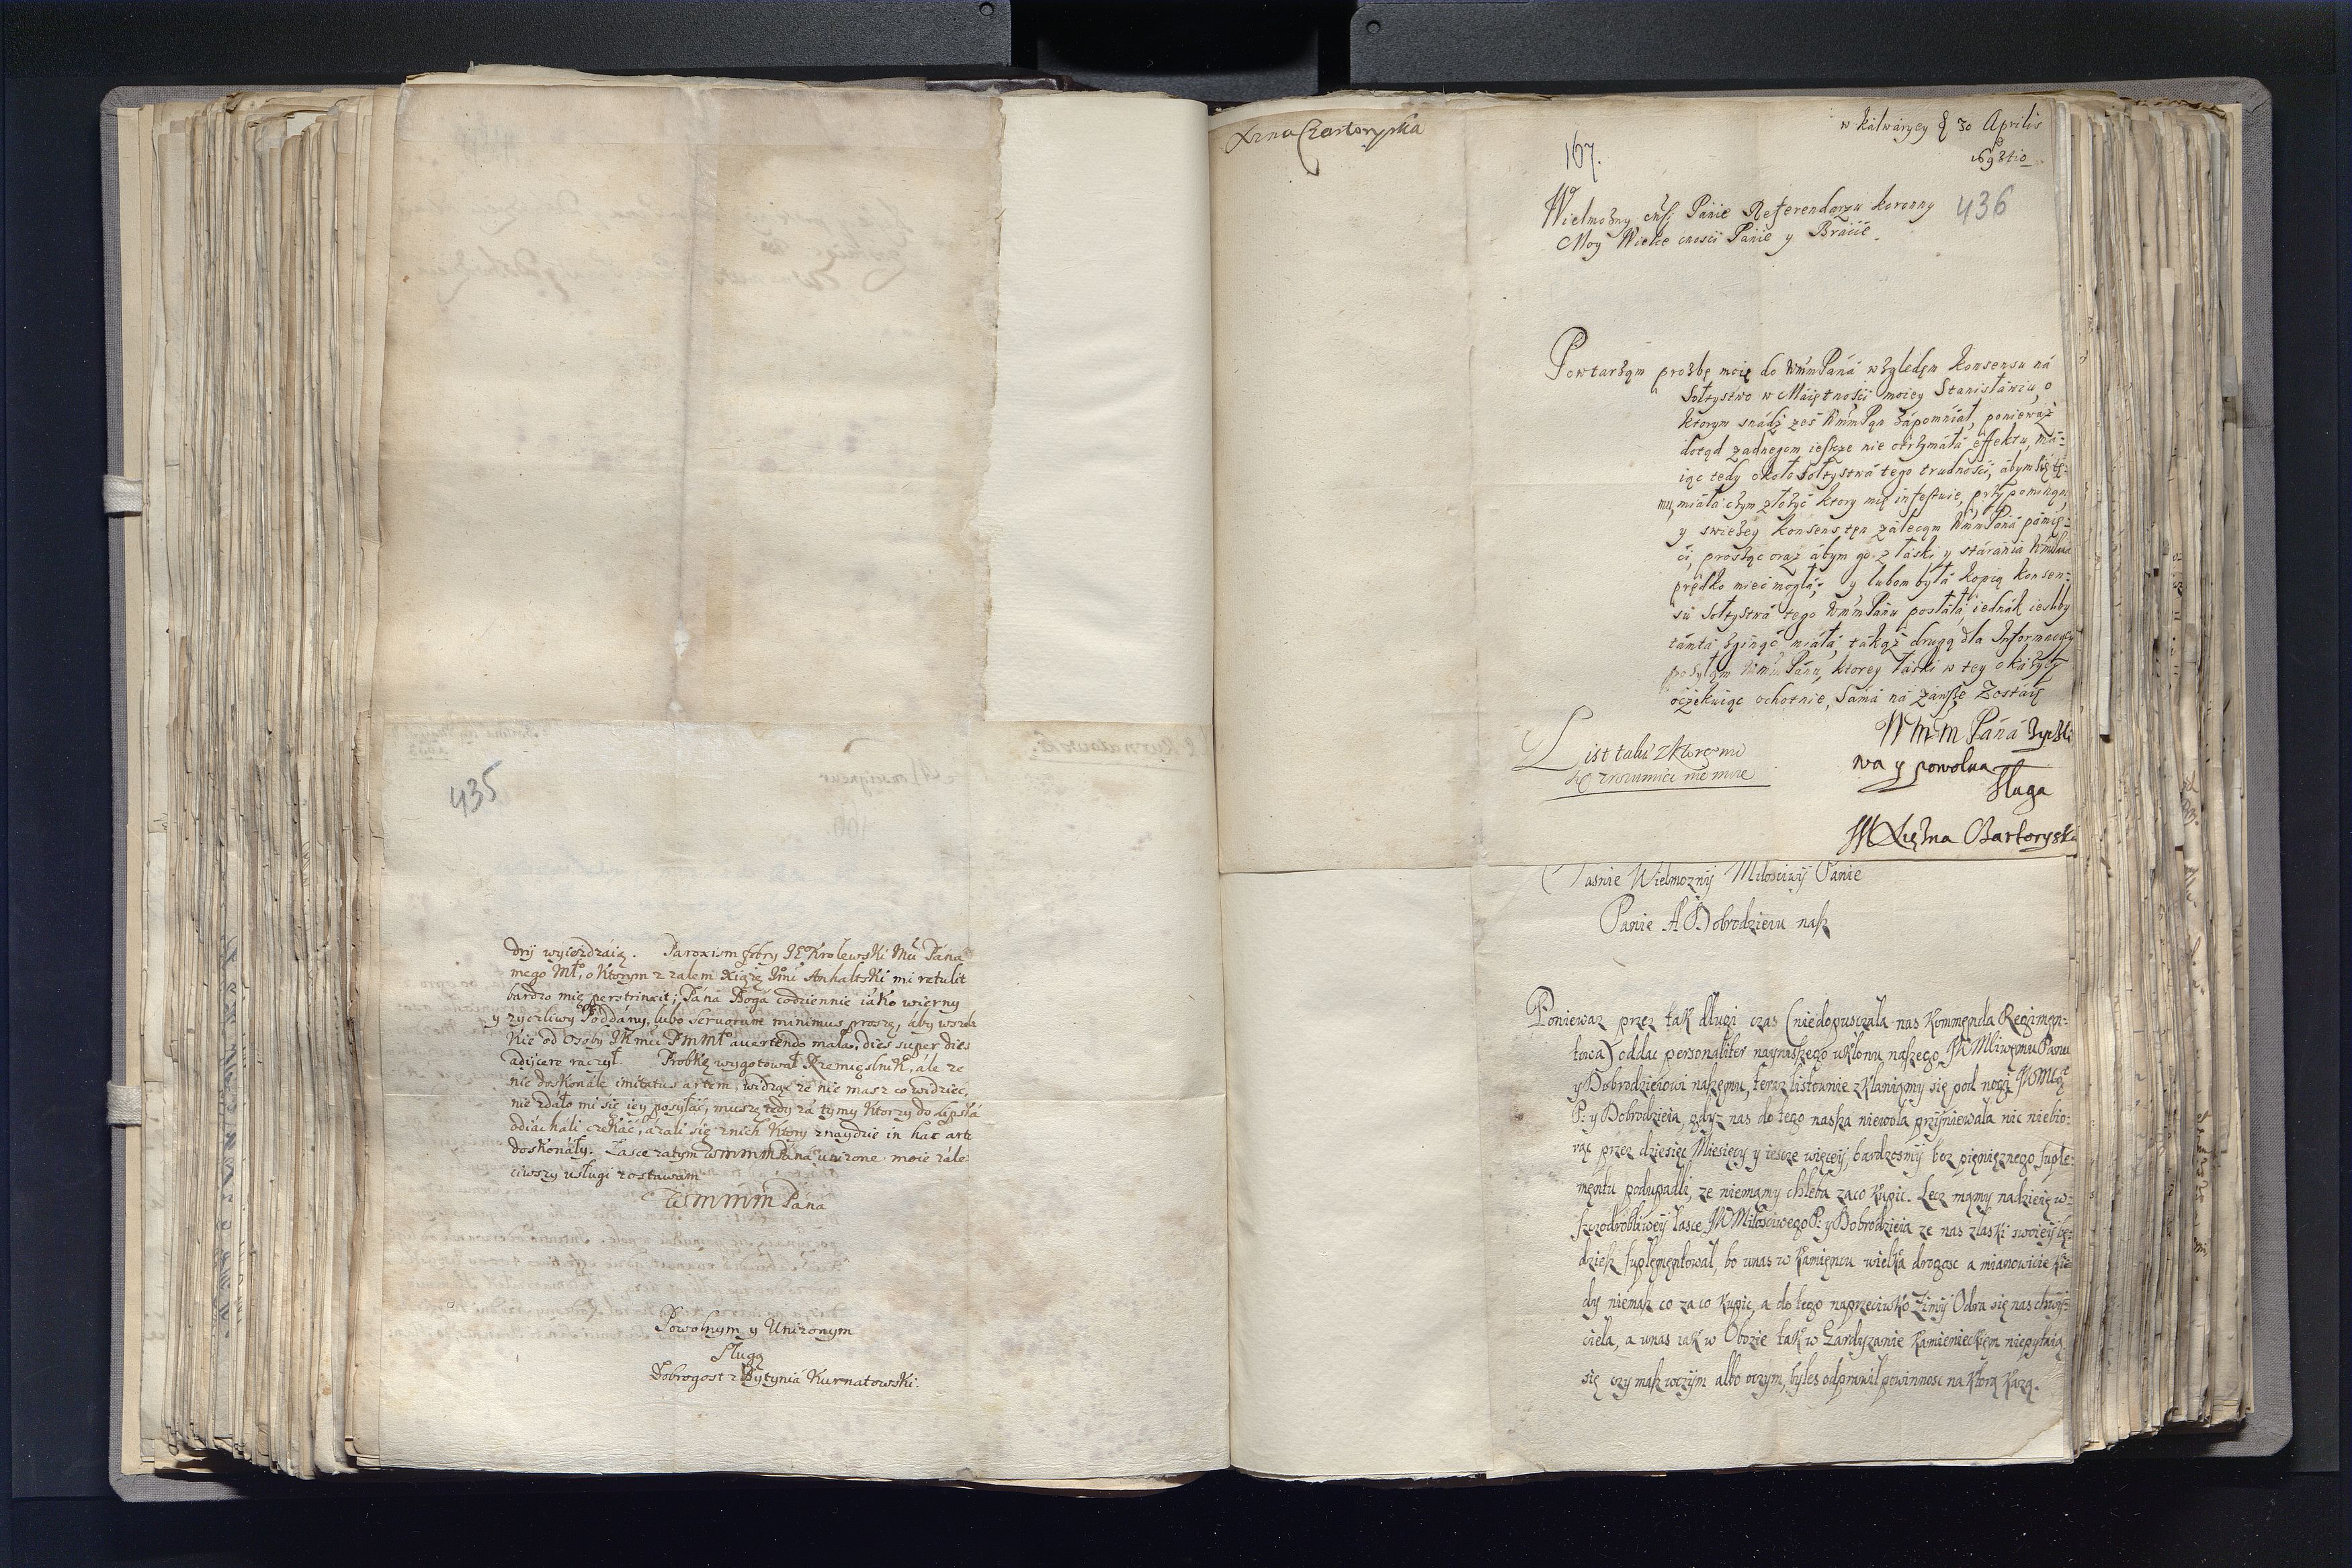 435
drij wyieżdzáią. Paroxism febry JKrolewski Mći Páná
mego Mło, o ktorym z zalem Xiążę Jmć Anhaltski mi retulit
bardzo mię perstrinxit; Páná Bogá codziennie iáko wierny
y zyczliwy Poddány, lubo servorum minimus proszę, áby wszel
kie od osoby JKmci PmMło avertendo mala, dies super dies
adijcere raczył. Probkę wygotował Rzemięslnik, ále ze
nie doskonále imitatus artem, widząc ze nie masz co widziec,
nie zdáło mi się iey posyłáć, muszę tedy zá tymy ktorzy do Lipská
odiácháli czekáć, azali się z nich ktory znaydzie in hac arte
doskonáły. Łasce zátym WmmmPáná unizone moie zále
ciwszy usługi zostawam
WmmmPána
Powolnym y Unizonym
Sługą
Dobrogost z Bytynia Kurnatowski.
Xzna Czartoryska
w Kálwáryey d 30 Aprilis
1693tio
167.
436
Wielmożny Mśj Pánie Referendarzu Koronny
Moy Wielce Mośći Pánie y Bráćie.
Powtarżąm prożbę moię do WmmPáná wżględęm konsensu ná
Sołtystwo w Máiętnośći moiey Stanisłáwiu, o
ktorym snádź żeś WmmPąn żápomniał, poniewáż
dotąd żadnegom ieszcże nie otrżymáłá effektu, má=
iąc tedy około Sołtystwá tego trudnośći, ábym się te=
mu, miáłá cżym złożyć ktory mię infestuie, prżypominąm
y swieżey konsens tęn zálecąm WmmPáná pámię=
ći, prosżąc oraz ábym go z łáski y stáránia WmmPáná
prędko mieć mogłá; y lubom byłá kopią konsen=
su Sołtystwá tego WmmPánu posłáłá, iednák iesliby
támtá żginąć miáłá, tákąż drugą dla Informacyey
posyłąm WmmPánu, ktorey łáski w tey okáżyey
ocżekuiąc ochotnie, Sámá ná záwsże Zostáię
WmmPáná życżli
wa y powolna
sługa
MXiężna Czartoryska
List taki z ktoręmu
się zrozumieć nie może
Jasnie Wielmoznij Miłosciwij Panie
Panie A Dobrodzieiu nasz
Poniewaz przez tak długi czas (niedopusczała nas Kommęnda Regimęn=
towa) oddac personaliter naynizszego ukłonu naszego JWMliwęmu Panu
y Dobrodzieiowi naszęmu, teraz listownie zkłaniąmy się pod nogi JWMłgo
P: y Dobrodzieia, gdyz nas do tego nasza niewola przijniewała nic niebio=
rąc przez dziesięc Miesięcy y iescze więceij, bardzosmij bez pięnięznego suple=
męntu podupadli, ze niemąmy chleba zaco kupic. Lecz mąmy nadzieię w=
szczodrobliweij łasce JWMiłosciwego P: y Dobrodzieia ze nas złaski swoieij bę=
dziesz suplęmęntował, bo unas w Kamięncu wielka drogosc a mianowicie kie=
dy niemasz co zaco kupic, a do tego naprzeciwko zimij Odra się nas chwij=
ciela, a unas iak w Obozie tak w Gardyzanie Kamienieckięm niepytaią
się czy masz wczijm albo oczym, byles odprawił powinnosc na ktorą kazą.